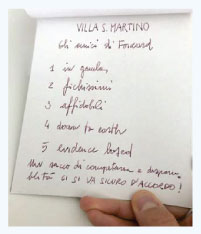 VILLA S. MARTINO
Gli amici di Forward
1 in gamba
2 fichissimi
3 affidabili
4 down to earth
5 evidence based
Un sacco di competenza e
CI SI VA SICURO D'ACCORDO!